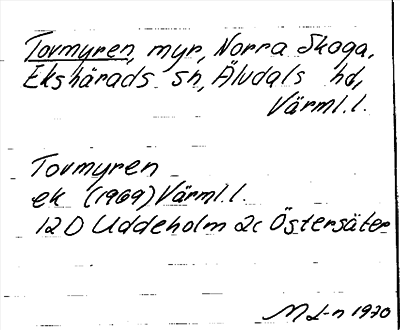 Tovmyren, myr, Norra Skoga,
Ekshärads sn, Älvdals hd,
Värml.l.
Tovmyren
ek (1969) Värml.l.
12D Uddeholm 2c Östersäter
M L-n 1970